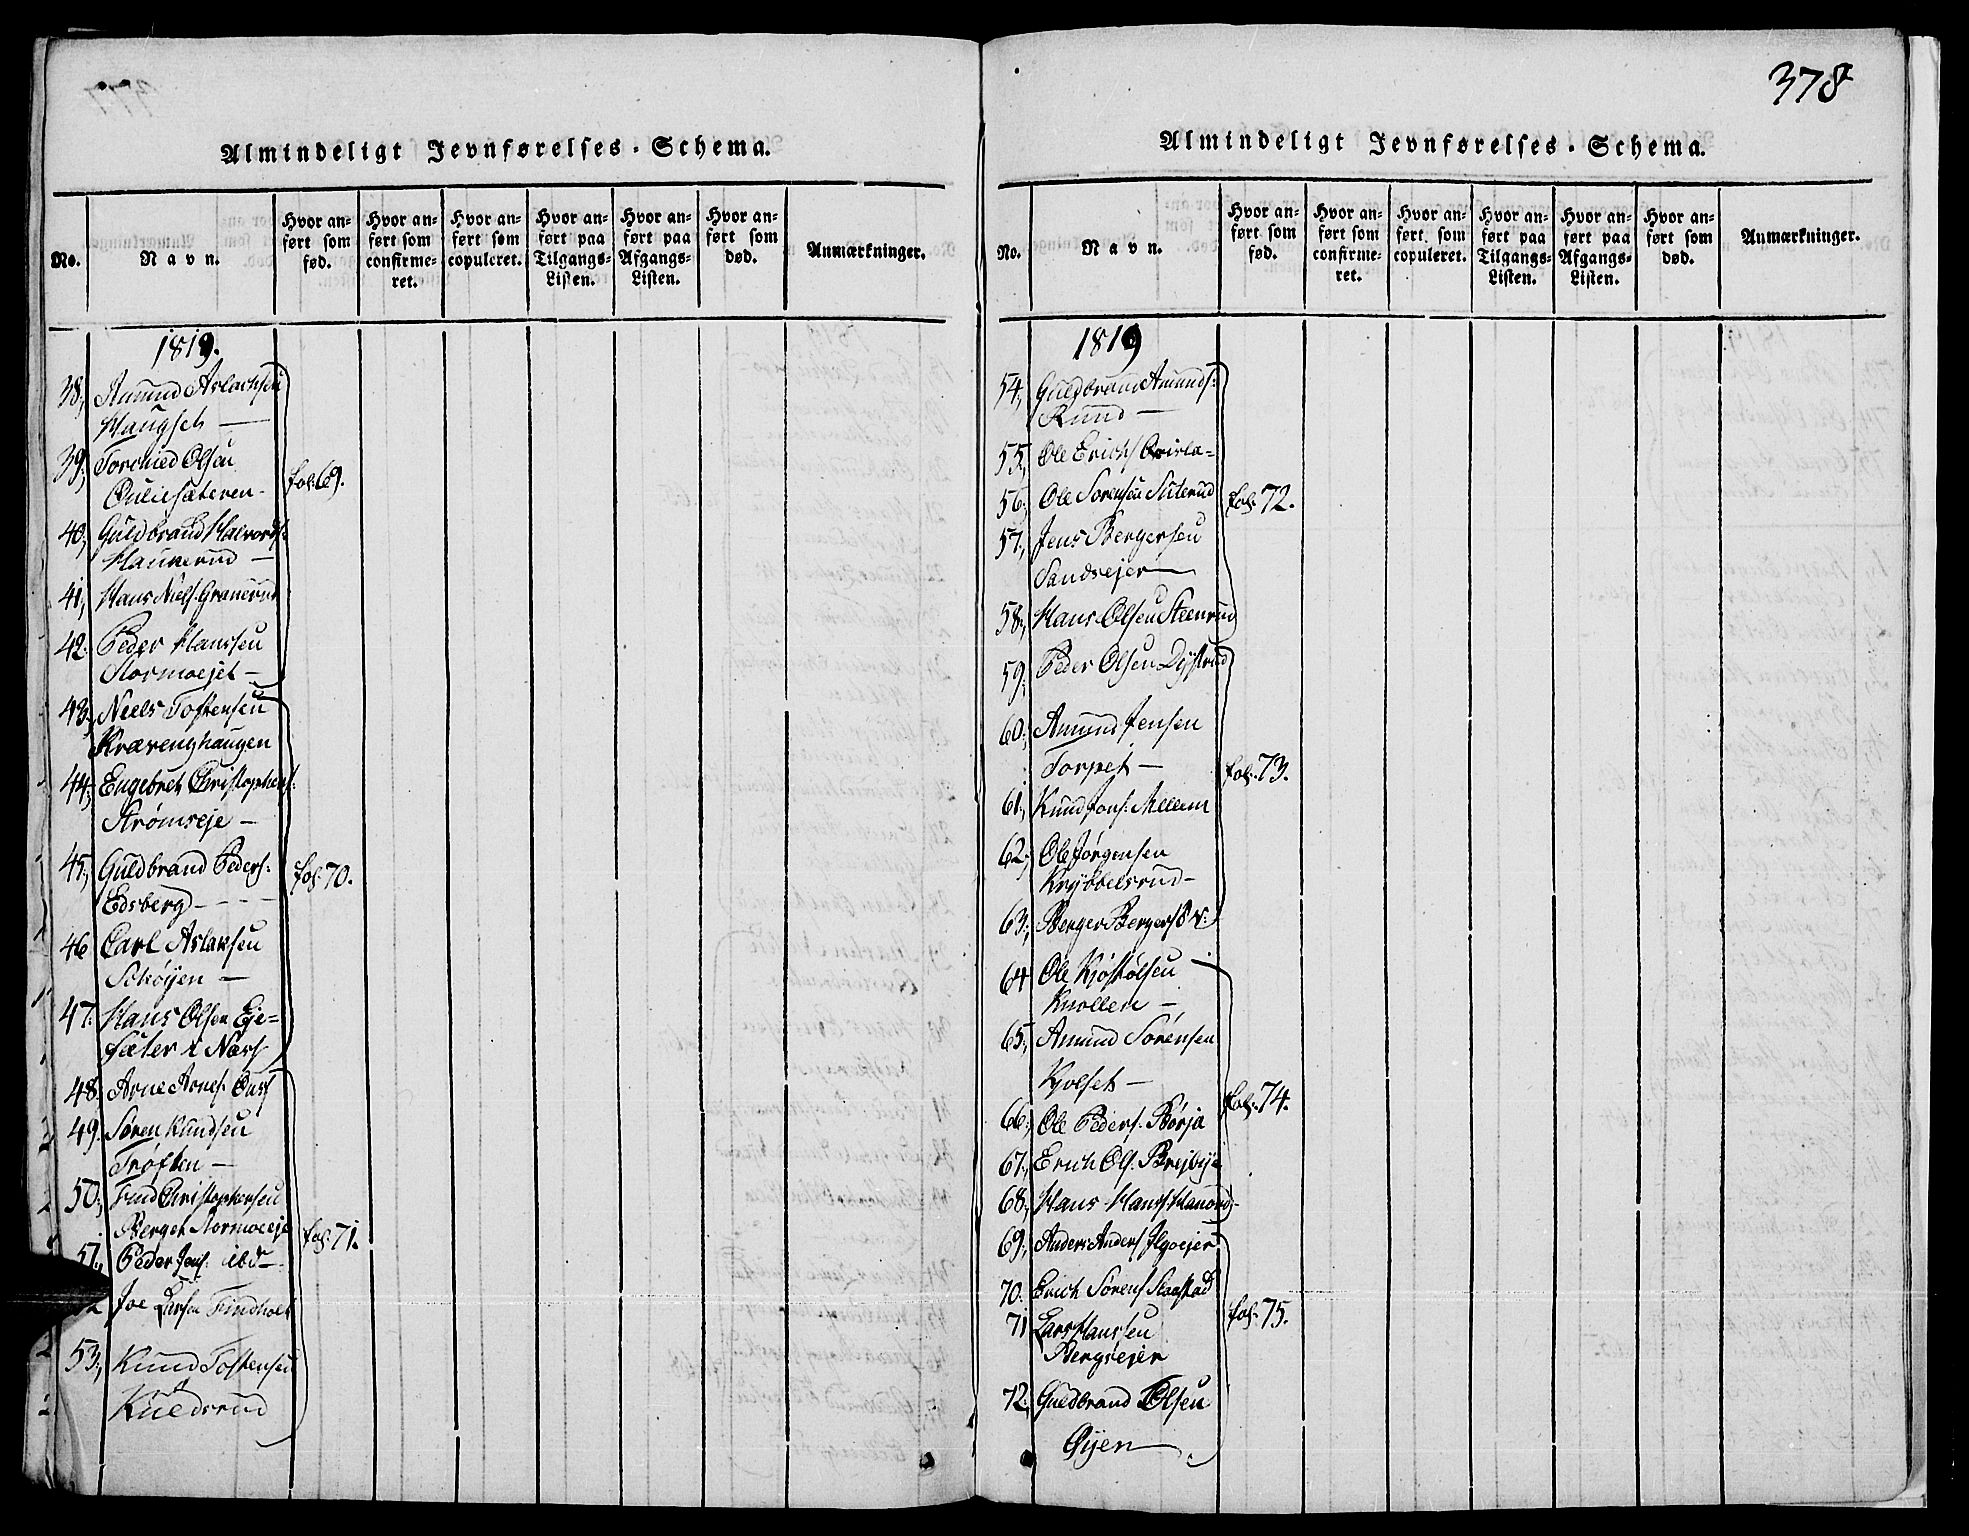 Almindeligt Jevnførelses-Schema.
No.
Navn.
Hvor an-
ført som
fød.
Hvor an-
ført som
confirme-
ret.
Hvor an-
ført som
copuleret.
Hvor an-
ført paa
Tilgangs-
Listen.
Hvor an-
ført paa
Afgangs-
Listen.
Hvor an-
ført som
død.
Anmærkninger.
1819.
38, Amund Aslachsen
Haugset —
39, Torchied Olsen
40, Guldbrand Halvords:
Haukerud —
fol: 69.
41, Hans Niels: Granerud
42. Peder Hanssen
Stormoejet —
43, Niels Tostensen
Kræverghaugen
44, Engebret Christophers:
Strømseje —
45, Guldbrand Peders:
Edsberg - - - -
fol: 70.
46 Carl Aslaksen
Schøyen —
47. Hans Olsen Eje=
sæter i Næss
48. Arne Arnes:
49. Søren Knudsen
Trøften —
50, Christophersen
Berget Stormoeeje
fol: 71.
51, Peder Jens: ibd —
52 Joe Larsen Findholt
53, Knud Tostensen
378
Almindeligt Jevnførelses-Schema.
No.
Navn.
Hvor an-
ført som
fød.
Hvor an-
ført som
confirme-
ret.
Hvor an-
ført som
copuleret.
Hvor an-
ført paa
Tilgangs-
Listen.
Hvor an-
ført paa
Afgangs-
Listen.
Hvor an-
ført som
død.
Anmærkninger.
1819
54, Guldbrand Amunds:
Ruud —
55, Ole Erichs:
56, Ole Sorensen Suterud
fol: 72.
57, Jens Bergersen
Sandsejer —
58, Hans Olsen Steenrud
59, Peder Olsen Dystrud
60, Amund Jensen
Torpet —
fol: 73.
61, Knud Jons: Mellem
62, Ole Jörgensen
Krybbelsrud —
63, Berger Bergers:
64 Ole Kjøstolsen
Knollen —
65, Amund Sörensen
Kjolset —
fol: 74.
66, Ole Peders: Börja
67, Erich Ols: Brejbye
68, Hans Hans:
69, Anders Anders:
70. Erich Sörens: Skogstad
71 Lars Hanssen
Bergsejer
fol: 75.
72, Guldbrand Olsen
Øyen —